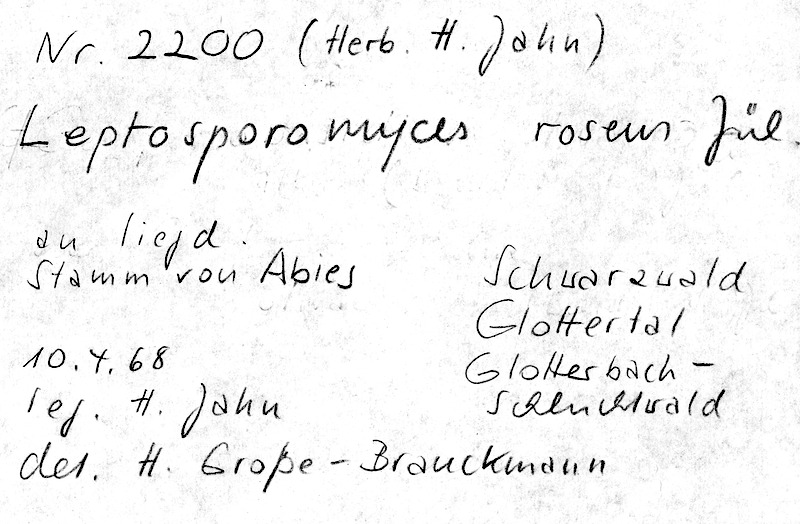 Nr. 2200 (Herb. H. Jahn)
Leptosporomyces roseus Jül.
an liegd.
Stamm von Abies
Schwarzwald
Glottertal
Glotterbach-
Schluchtwald
10.4.68
leg. H. Jahn
det. H. Große-Brauckmann